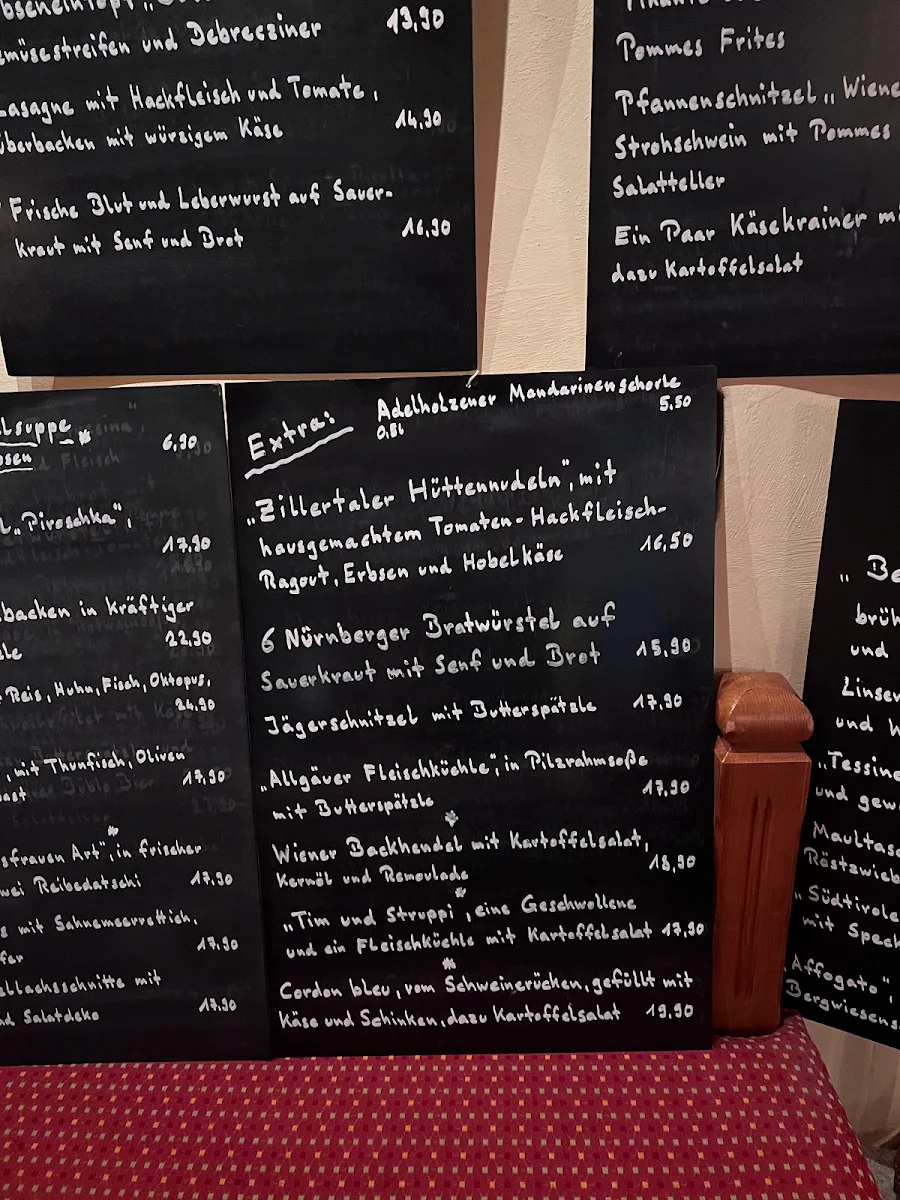 13,90
und Debrecziner
Lasagne mit Hackfleisch und Tomate,
überbacken mit würzigem Käse 14,90
Frische Blut und Leberwurst auf Sauer-
kraut mit Senf und Brot 16,90
Pommes Frites
Pfannenschnitzel „Wiene
Strohschwein mit Pommes
Salatteller
Ein Paar Käsekrainer mi
dazu Kartoffelsalat
6,90
„Piroschka",
17,90
backen in kräftiger
22,90
Reis, Huhn, Fisch, Oktopus,
24,90
, mit Thunfisch, Oliven
17,90
sfrauen Art", in frischer
wei Reibedatschi 17,90
mit Sahnemeerrettich,
17,90
mit
nd Salatdeko 17,90
Extra: Adelholzener Mandarinenschorle
0,5l 5,50
„Zillertaler Hüttennudeln", mit
hausgemachtem Tomaten-Hackfleisch-
Ragout, Erbsen und Hobelkäse 16,50
6 Nürnberger Bratwürstel auf
Sauerkraut mit Senf und Brot 15,90
Jägerschnitzel mit Butterspätzle 17,90
„Allgäuer Fleischküchle", in Pilzrahmsoße
mit Butterspätzle 17,90
Wiener Backhendel mit Kartoffelsalat,
Kernöl und Remoulade 18,90
„Tim und Struppi", eine Geschwollene
und ein Fleischküchle mit Kartoffelsalat 17,90
Cordon bleu, vom Schweinerücken, gefüllt mit
Käse und Schinken, dazu Kartoffelsalat 19,90
„Be
brüh
und
Linsen
und W
„Tessine
und gew
Maultasc
Röstzwieb
„Südtirole
mit Speck
Affogato",
Bergwiesen